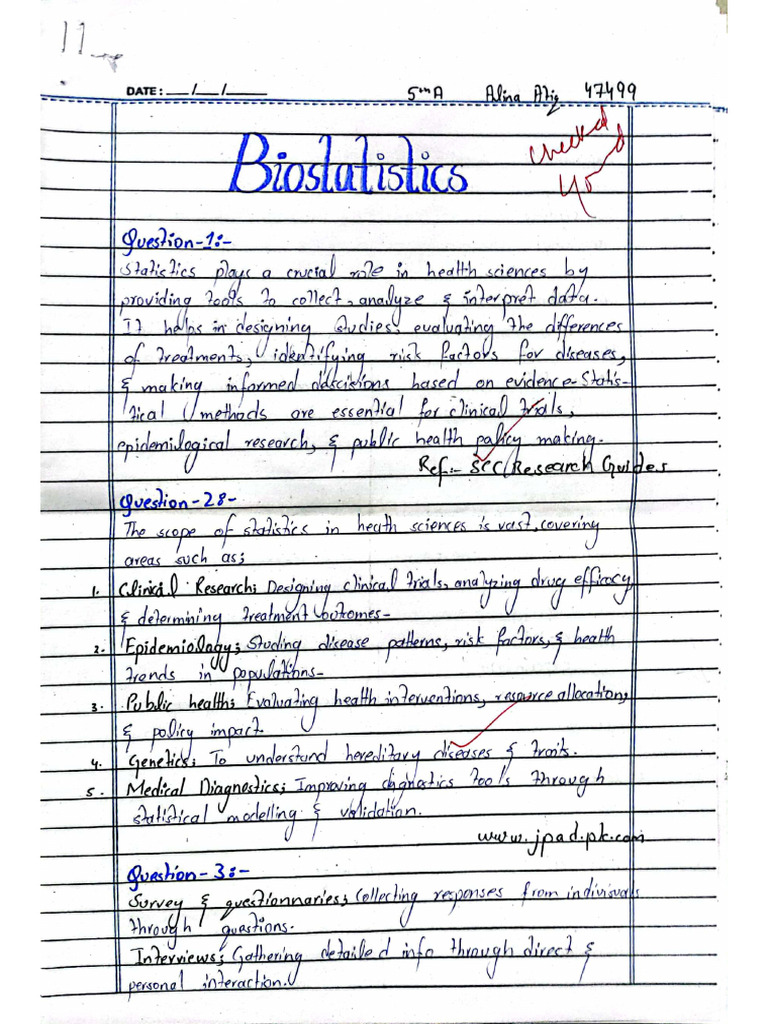 11
DATE: __/__/__ 5th A Alina Atiq 47499
checked
Biostatistics
Question-1:-
Statistics plays a crucial role in health sciences by
providing tools to collect, analyze & interpret data.
It helps in designing studies, evaluating the differences
of treatments, identifying risk factors for diseases,
& making informed dascisions based on evidence-Statis-
tical methods are essential for clinical trials,
epidemilogical research, & public health policy making.
Ref:- SCC Research Guides
Question-28-
The scope of statistics in heath sciences is vast, covering
areas such as;
1. Clinical Research; Designing clinical trials, analyzing drug efficacy
& determining treatment outcomes-
2. Epidemiology; Studing disease patterns, risk factors, & health
trends in populations-
3. Public health; Evaluating health interventions, resource allocation,
& policy impact.
4. Genetics; To understand hereditary diseases & traits.
5. Medical Diagnostics; Improving diagnostics tools through
statistical modelling & validation.
www.jpad.pk.com
Question-3:-
Survey & questionnaries; Collecting responses from indivisuals
through questions.
Interviews; Gathering detailed info through direct &
personal interaction.